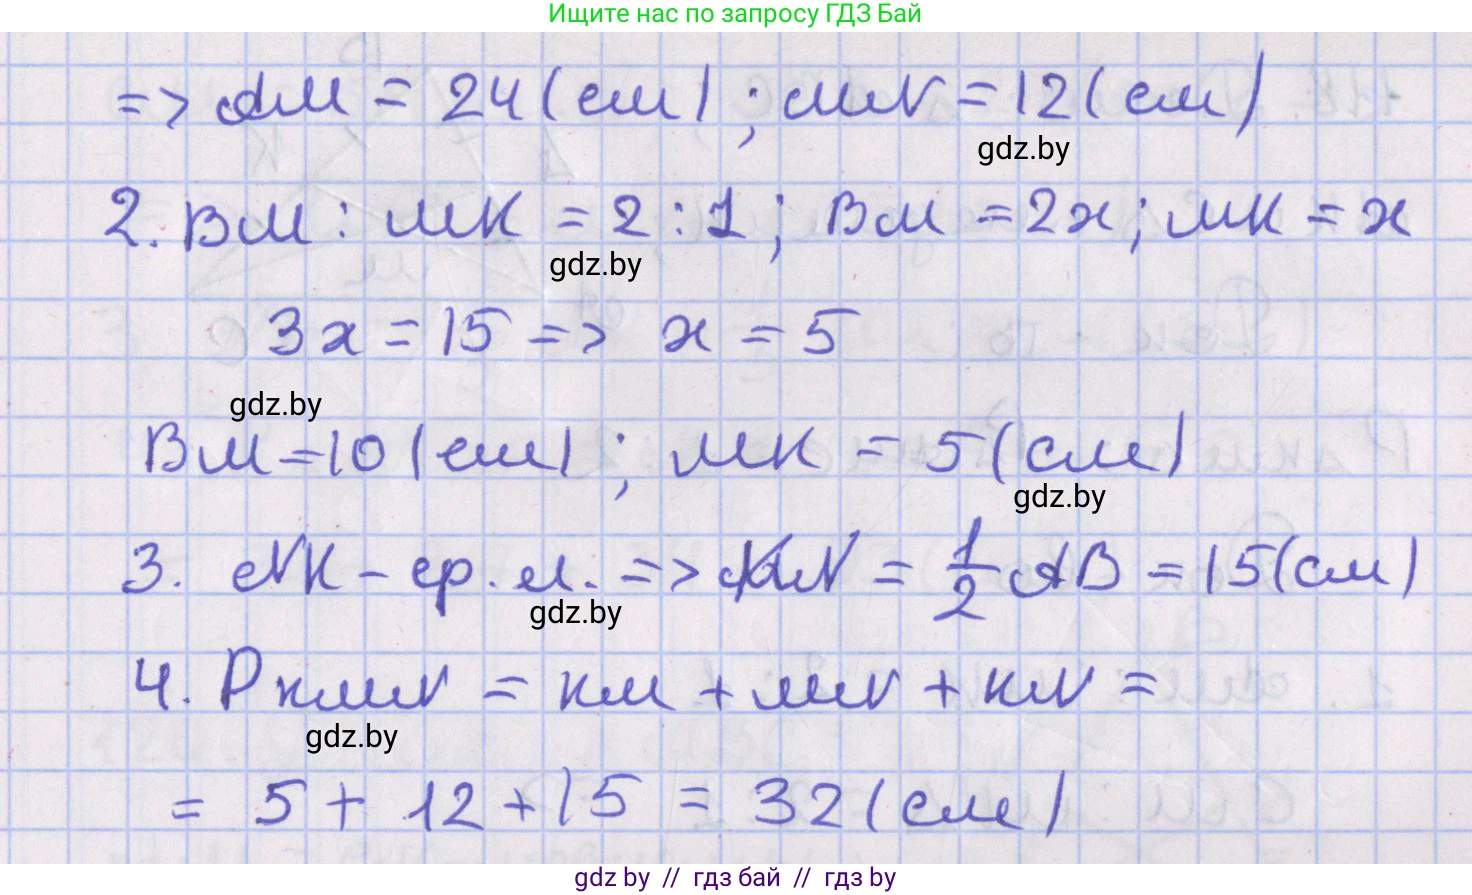 Ищите нас по запросу ГДЗ Бай
=> AM = 24 (см) ; MN = 12 (см)
gdz.by
2. BM : MK = 2 : 1 ; BM = 2x ; MK = x
gdz.by
3x = 15 => x = 5
gdz.by
BM = 10 (см) ; MK = 5 (см)
gdz.by
3. NK - ср. л. => KN = 1/2 AB = 15 (см)
gdz.by
4. P KMN = KM + MN + KN =
gdz.by
= 5 + 12 + 15 = 32 (см)
gdz by // гдз бай // гдз by